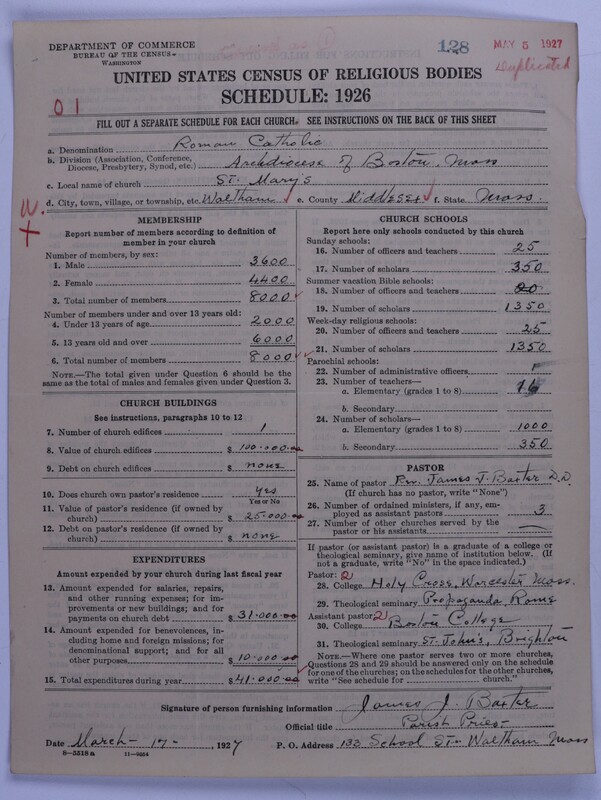 DEPARTMENT OF COMMERCE
BUREAU OF THE CENSUS
WASHINGTON
128
MAY 5 1927
Duplicated
UNITED STATES CENSUS OF RELIGIOUS BODIES
SCHEDULE: 1926
01
FILL OUT A SEPARATE SCHEDULE FOR EACH CHURCH. SEE INSTRUCTIONS ON THE BACK OF THIS SHEET
a. Denomination Roman Catholic
b. Division (Association, Conference, Diocese, Presbytery, Synod, etc.) Archdiocese of Boston, Mass
c. Local name of church St. Mary's
d. City, town, village, or township, etc. Waltham e. County Middlesex f. State Mass.
MEMBERSHIP
Report number of members according to definition of member in your church
Number of members, by sex:
1. Male 3600
2. Female 4400
3. Total number of members 8000
Number of members under and over 13 years old:
4. Under 13 years of age 2000
5. 13 years old and over 6000
6. Total number of members 8000
NOTE.—The total given under Question 6 should be the same as the total of males and females given under Question 3.
CHURCH BUILDINGS
See instructions, paragraphs 10 to 12
7. Number of church edifices 1
8. Value of church edifices $ 100.000.00
9. Debt on church edifices $ none
10. Does church own pastor's residence yes
Yes or No
11. Value of pastor's residence (if owned by church) $ 25.000.00
12. Debt on pastor's residence (if owned by church) $ none
EXPENDITURES
Amount expended by your church during last fiscal year
13. Amount expended for salaries, repairs, and other running expenses; for improvements or new buildings; and for payments on church debt $ 31.000.00
14. Amount expended for benevolences, including home and foreign missions; for denominational support; and for all other purposes $ 10.000.00
15. Total expenditures during year $ 41.000.00
CHURCH SCHOOLS
Report here only schools conducted by this church
Sunday schools:
16. Number of officers and teachers 25
17. Number of scholars 350
Summer vacation Bible schools:
18. Number of officers and teachers
19. Number of scholars 1350
Week-day religious schools:
20. Number of officers and teachers 25
21. Number of scholars 1350
Parochial schools:
22. Number of administrative officers 1
23. Number of teachers—
a. Elementary (grades 1 to 8) 16
b. Secondary
24. Number of scholars—
a. Elementary (grades 1 to 8) 1000
b. Secondary 350
PASTOR
25. Name of pastor Rev. James J. Baxter D.D.
(If church has no pastor, write "None")
26. Number of ordained ministers, if any, employed as assistant pastors 3
27. Number of other churches served by the pastor or his assistants —
If pastor (or assistant pastor) is a graduate of a college or theological seminary, give name of institution below. (If not a graduate, write "No" in the space indicated.)
Pastor: 2
28. College Holy Cross, Worcester Mass.
29. Theological seminary Propaganda, Rome
Assistant pastor: 21
30. College Boston College
31. Theological seminary St. John's, Brighton
NOTE.—Where one pastor serves two or more churches, Questions 28 and 29 should be answered only on the schedule for one of the churches; on the schedules for the other churches, write "See schedule for church."
Signature of person furnishing information James J. Baxter
Official title Parish Priest
Date March-17-, 1927 P. O. Address 133 School St- Waltham Mass
8-5518a 11-9664